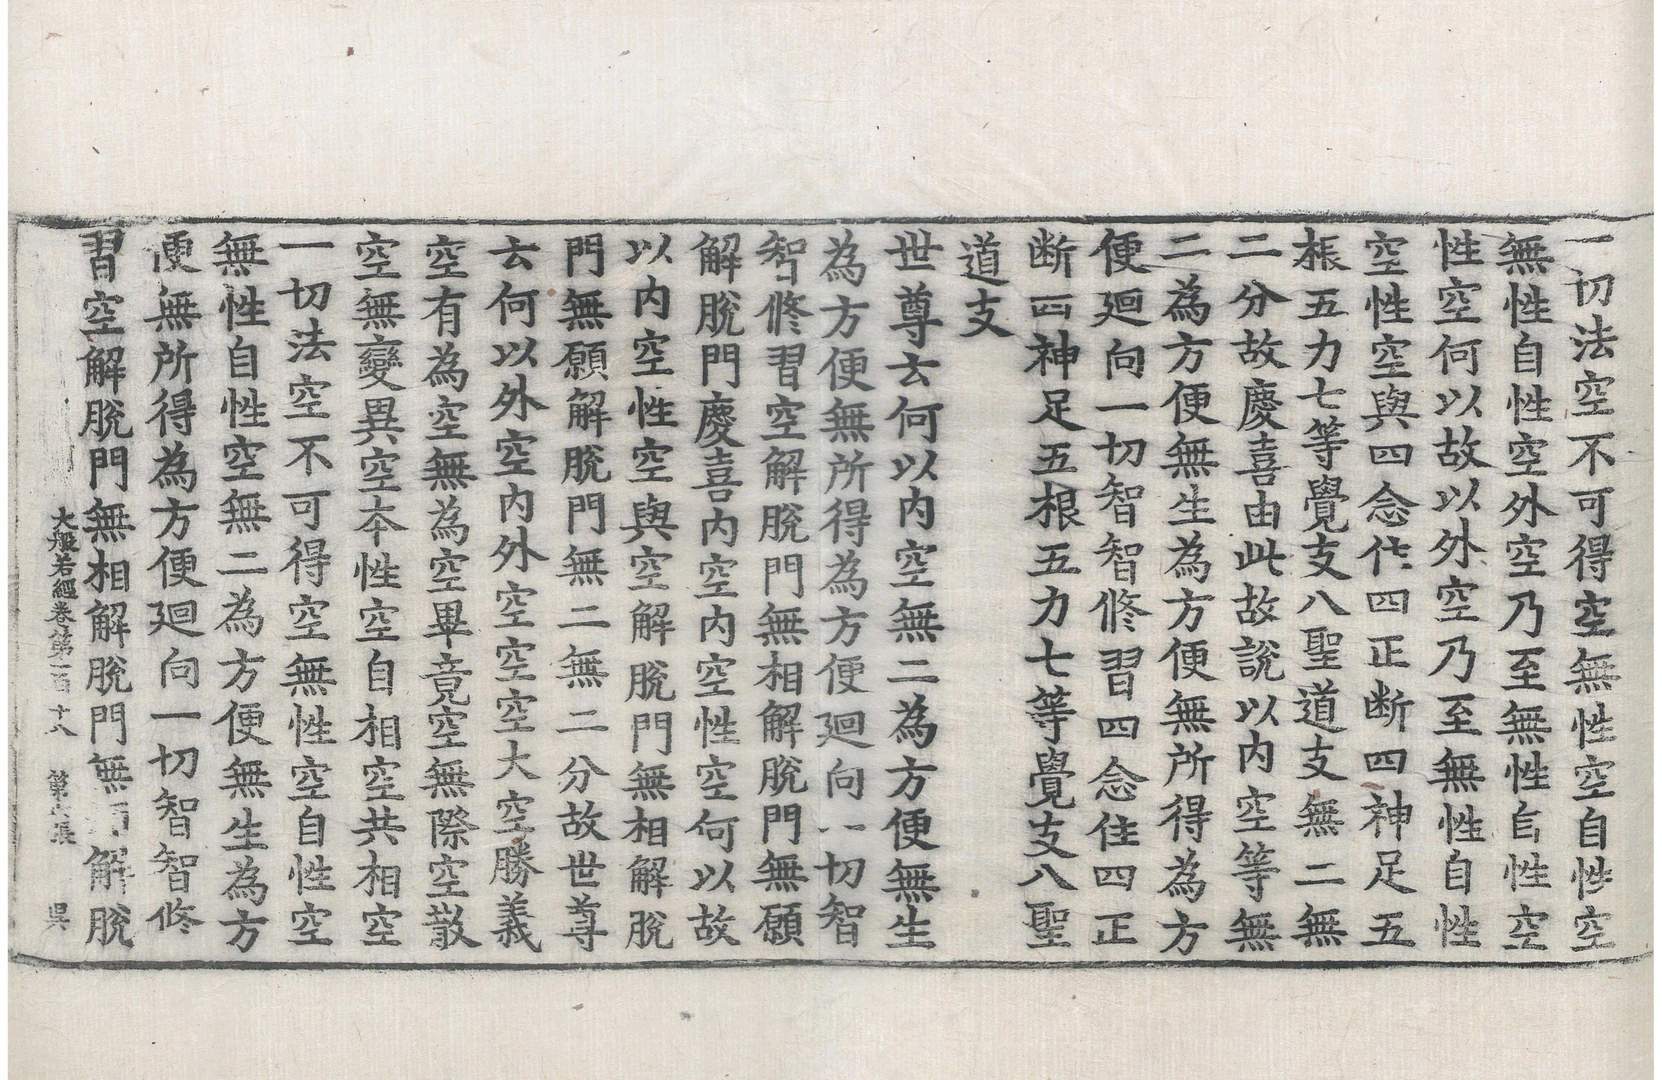 一切法空不可得空無性空自性空
無性自性空外空乃至無性自性空
性空何以故以外空乃至無性自性
空性空與四念住四正断四神足五
根五力七等覺支八聖道支無二無
二分故慶喜由此故說以内空等無
二為方便無生為方便無所得為方
便廻向一切智智修習四念住四正
断四神足五根五力七等覺支八聖
道支
世尊云何以内空無二為方便無生
為方便無所得為方便廻向一切智
智修習空解脫門無相解脫門無願
解脫門慶喜内空内空性空何以故
以内空性空與空解脫門無相解脫
門無願解脫門無二無二分故世尊
云何以外空内外空空空大空勝義
空有為空無為空畢竟空無際空散
空無變異空本性空自相空共相空
一切法空不可得空無性空自性空
無性自性空無二為方便無生為方
便無所得為方便廻向一切智智修
習空解脫門無相解脫門無解脫
大般若經卷第一百十八 第六張 吳